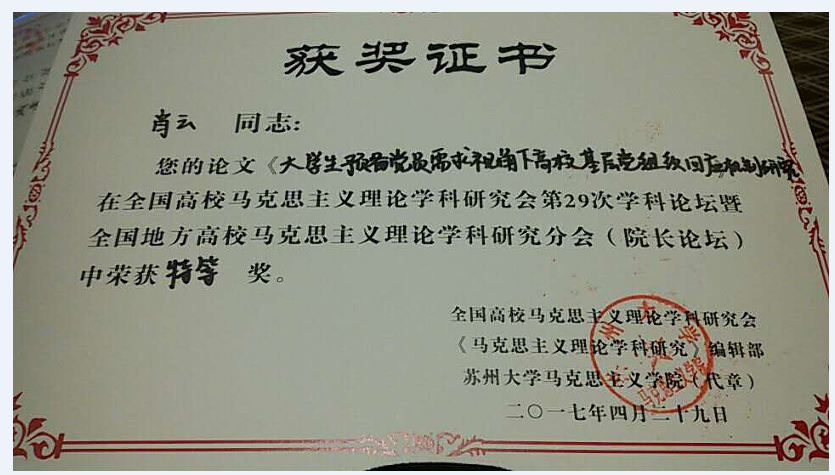 获奖证书
肖云 同志:
您的论文《大学生预备党员需求视角下高校基层党组织回应机制研究
在全国高校马克思主义理论学科研究会第29次学科论坛暨
全国地方高校马克思主义理论学科研究分会（院长论坛）
中荣获 特等 奖。
全国高校马克思主义理论学科研究会
《马克思主义理论学科研究》编辑部
苏州大学马克思主义学院（代章）
二〇一七年四月二十九日
马克思主义学院